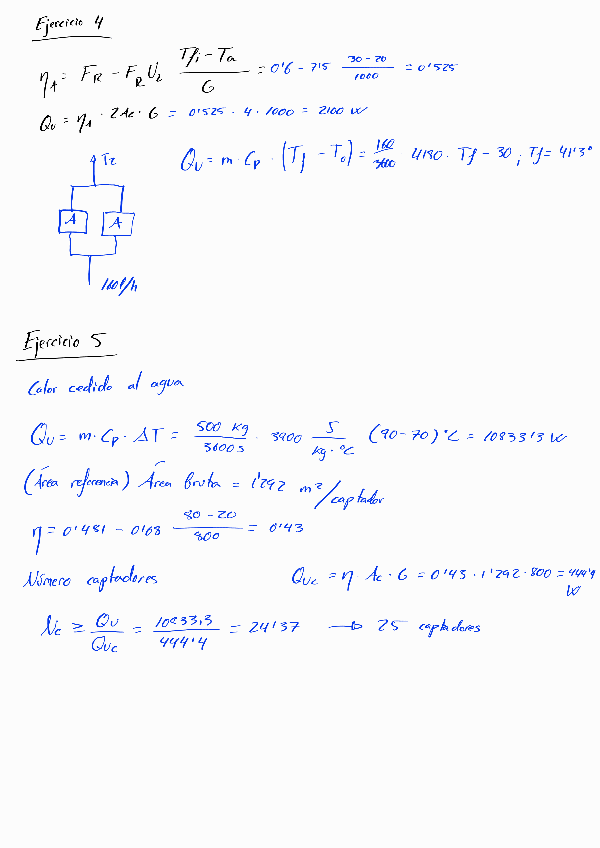 Ejercicio 4
η_A = F_R - F_R U_L (Tfi - Ta)/G = 0'6 - 7'5 (30-20)/1000 = 0'525
Qu = η_A · 2Ac · G = 0'525 · 4 · 1000 = 2100 W
Qu = m · Cp · (Tf - To) = 160/3600 4180 · Tf - 30 ; Tf = 41'3°
Tz
A A
160 l/h
Ejercicio 5
Calor cedido al agua
Qu = m · Cp · ΔT = 500 kg/3600 s · 3900 J/kg·°C (90-70) °C = 10833'3 W
(Área referencia) Área bruta = 1'292 m²/captador
η = 0'481 - 0'68 (80-20)/800 = 0'43
Número captadores Quc = η Ac · G = 0'43 · 1'292 · 800 = 444'4 W
Nc ≥ Qu/Quc = 10833,3/444'4 = 24'37 → 25 captadores